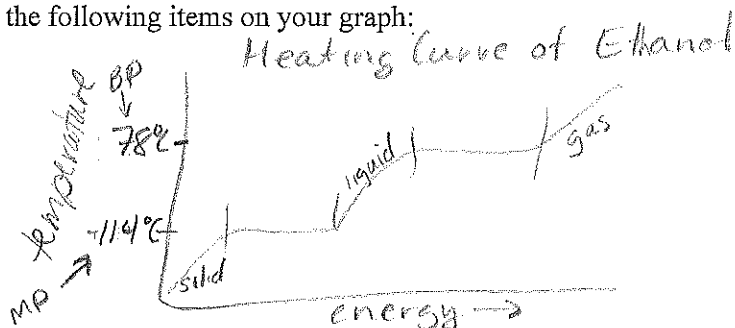 the following items on your graph:
Heating Curve of Ethanol
temperature
BP
78°C
-114°C
MP
solid
liquid
gas
energy →